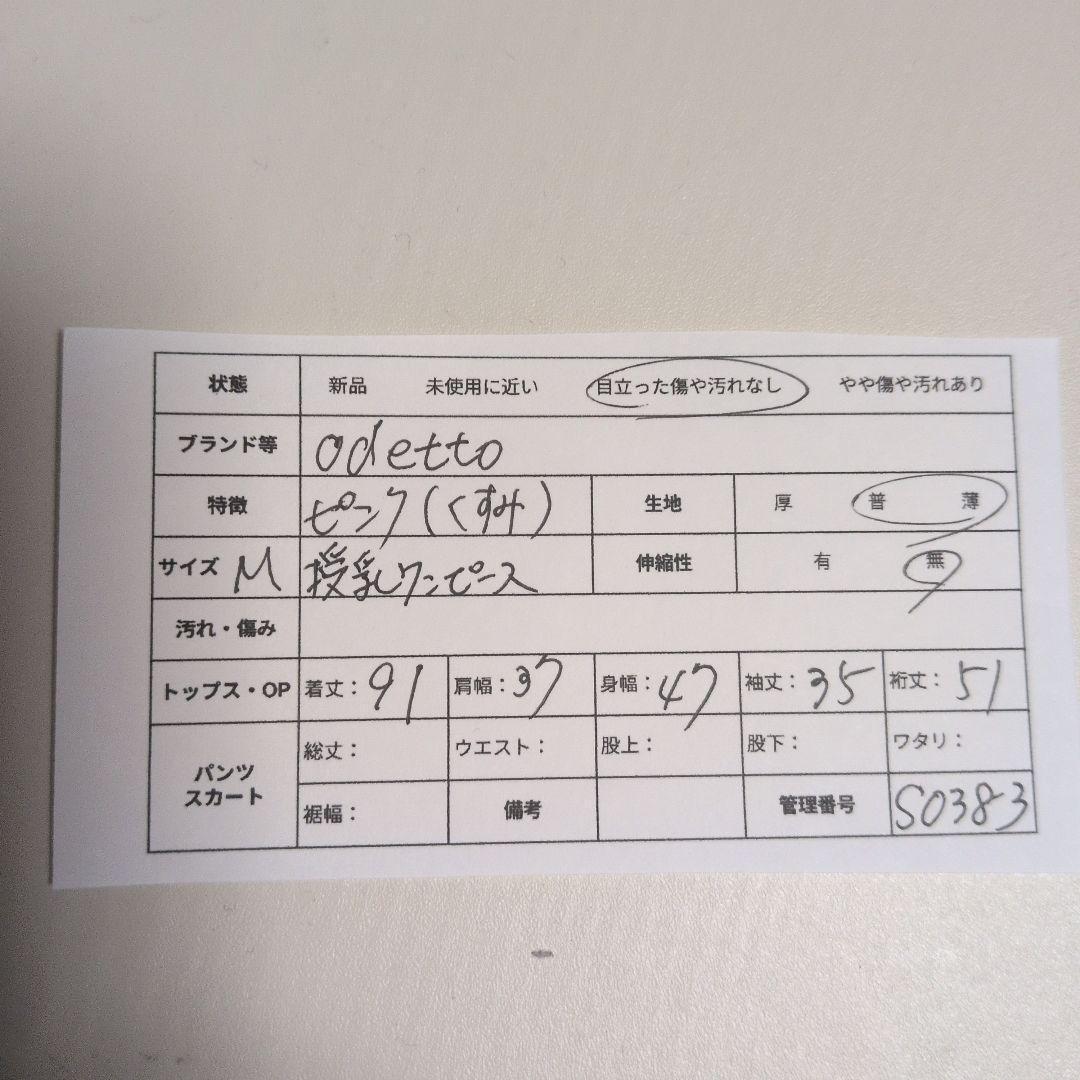 状態 新品 未使用に近い 目立った傷や汚れなし やや傷や汚れあり
ブランド等 odetto
特徴 ピンク(くすみ) 生地 厚 普 薄
サイズ M 授乳ワンピース 伸縮性 有 無
汚れ・傷み
トップス・OP 着丈:91 肩幅:37 身幅:47 袖丈:35 裄丈:51
パンツ スカート 総丈: ウエスト: 股上: 股下: ワタリ:
裾幅: 備考 管理番号 S0383